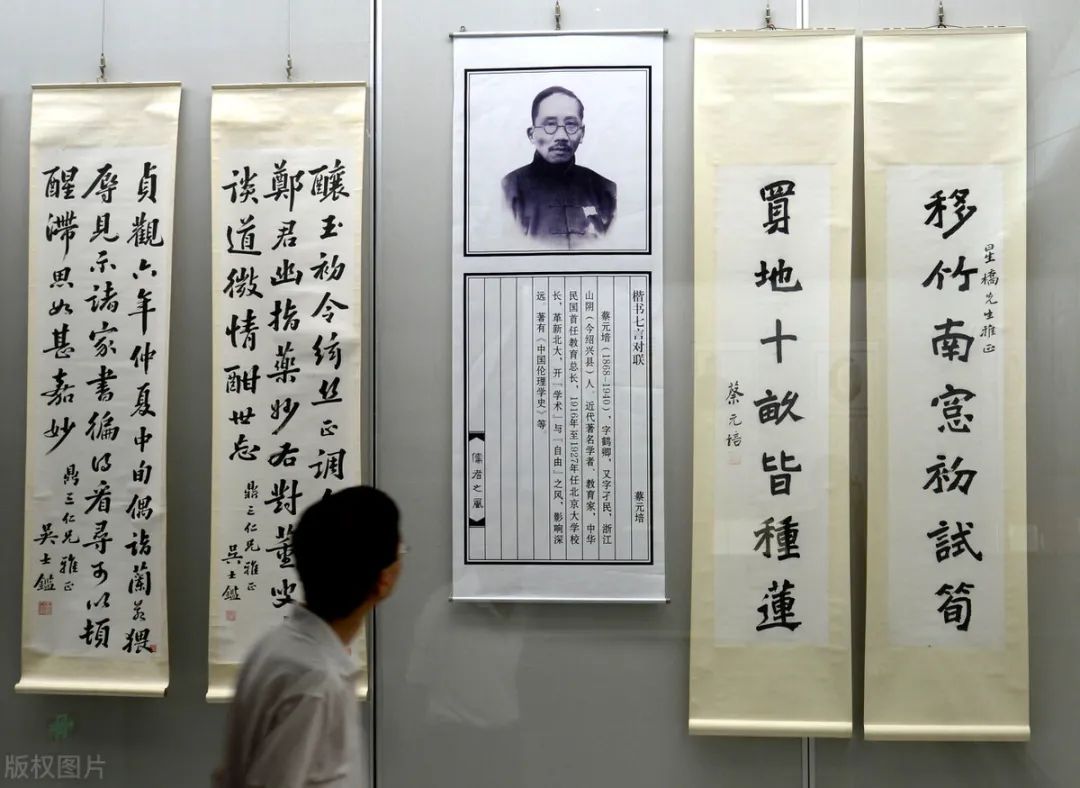 移竹南窓初試筍
星橋先生雅正
買地十畝皆種蓮
蔡元培
楷书七言对联 蔡元培
蔡元培（1868-1940），字鹤卿，又字孑民，浙江
山阴（今绍兴县）人。近代著名学者、教育家，中华
民国首任教育总长，1916年至1927年任北京大学校
长，革新北大，开「学术」与「自由」之风，影响深
远。著有《中国伦理学史》等
儒者之风
釀玉初令綺丝正調
鄭君幽指藥妙右對董叟
談道微情酣世忘
鼎三仁兄雅正
吳士鑑
貞觀六年仲夏中旬偶詣蘭若猥
辱見示諸家書編得看尋可以頓
醒滯思如甚嘉妙
鼎三仁兄雅正
吳士鑑
版权图片